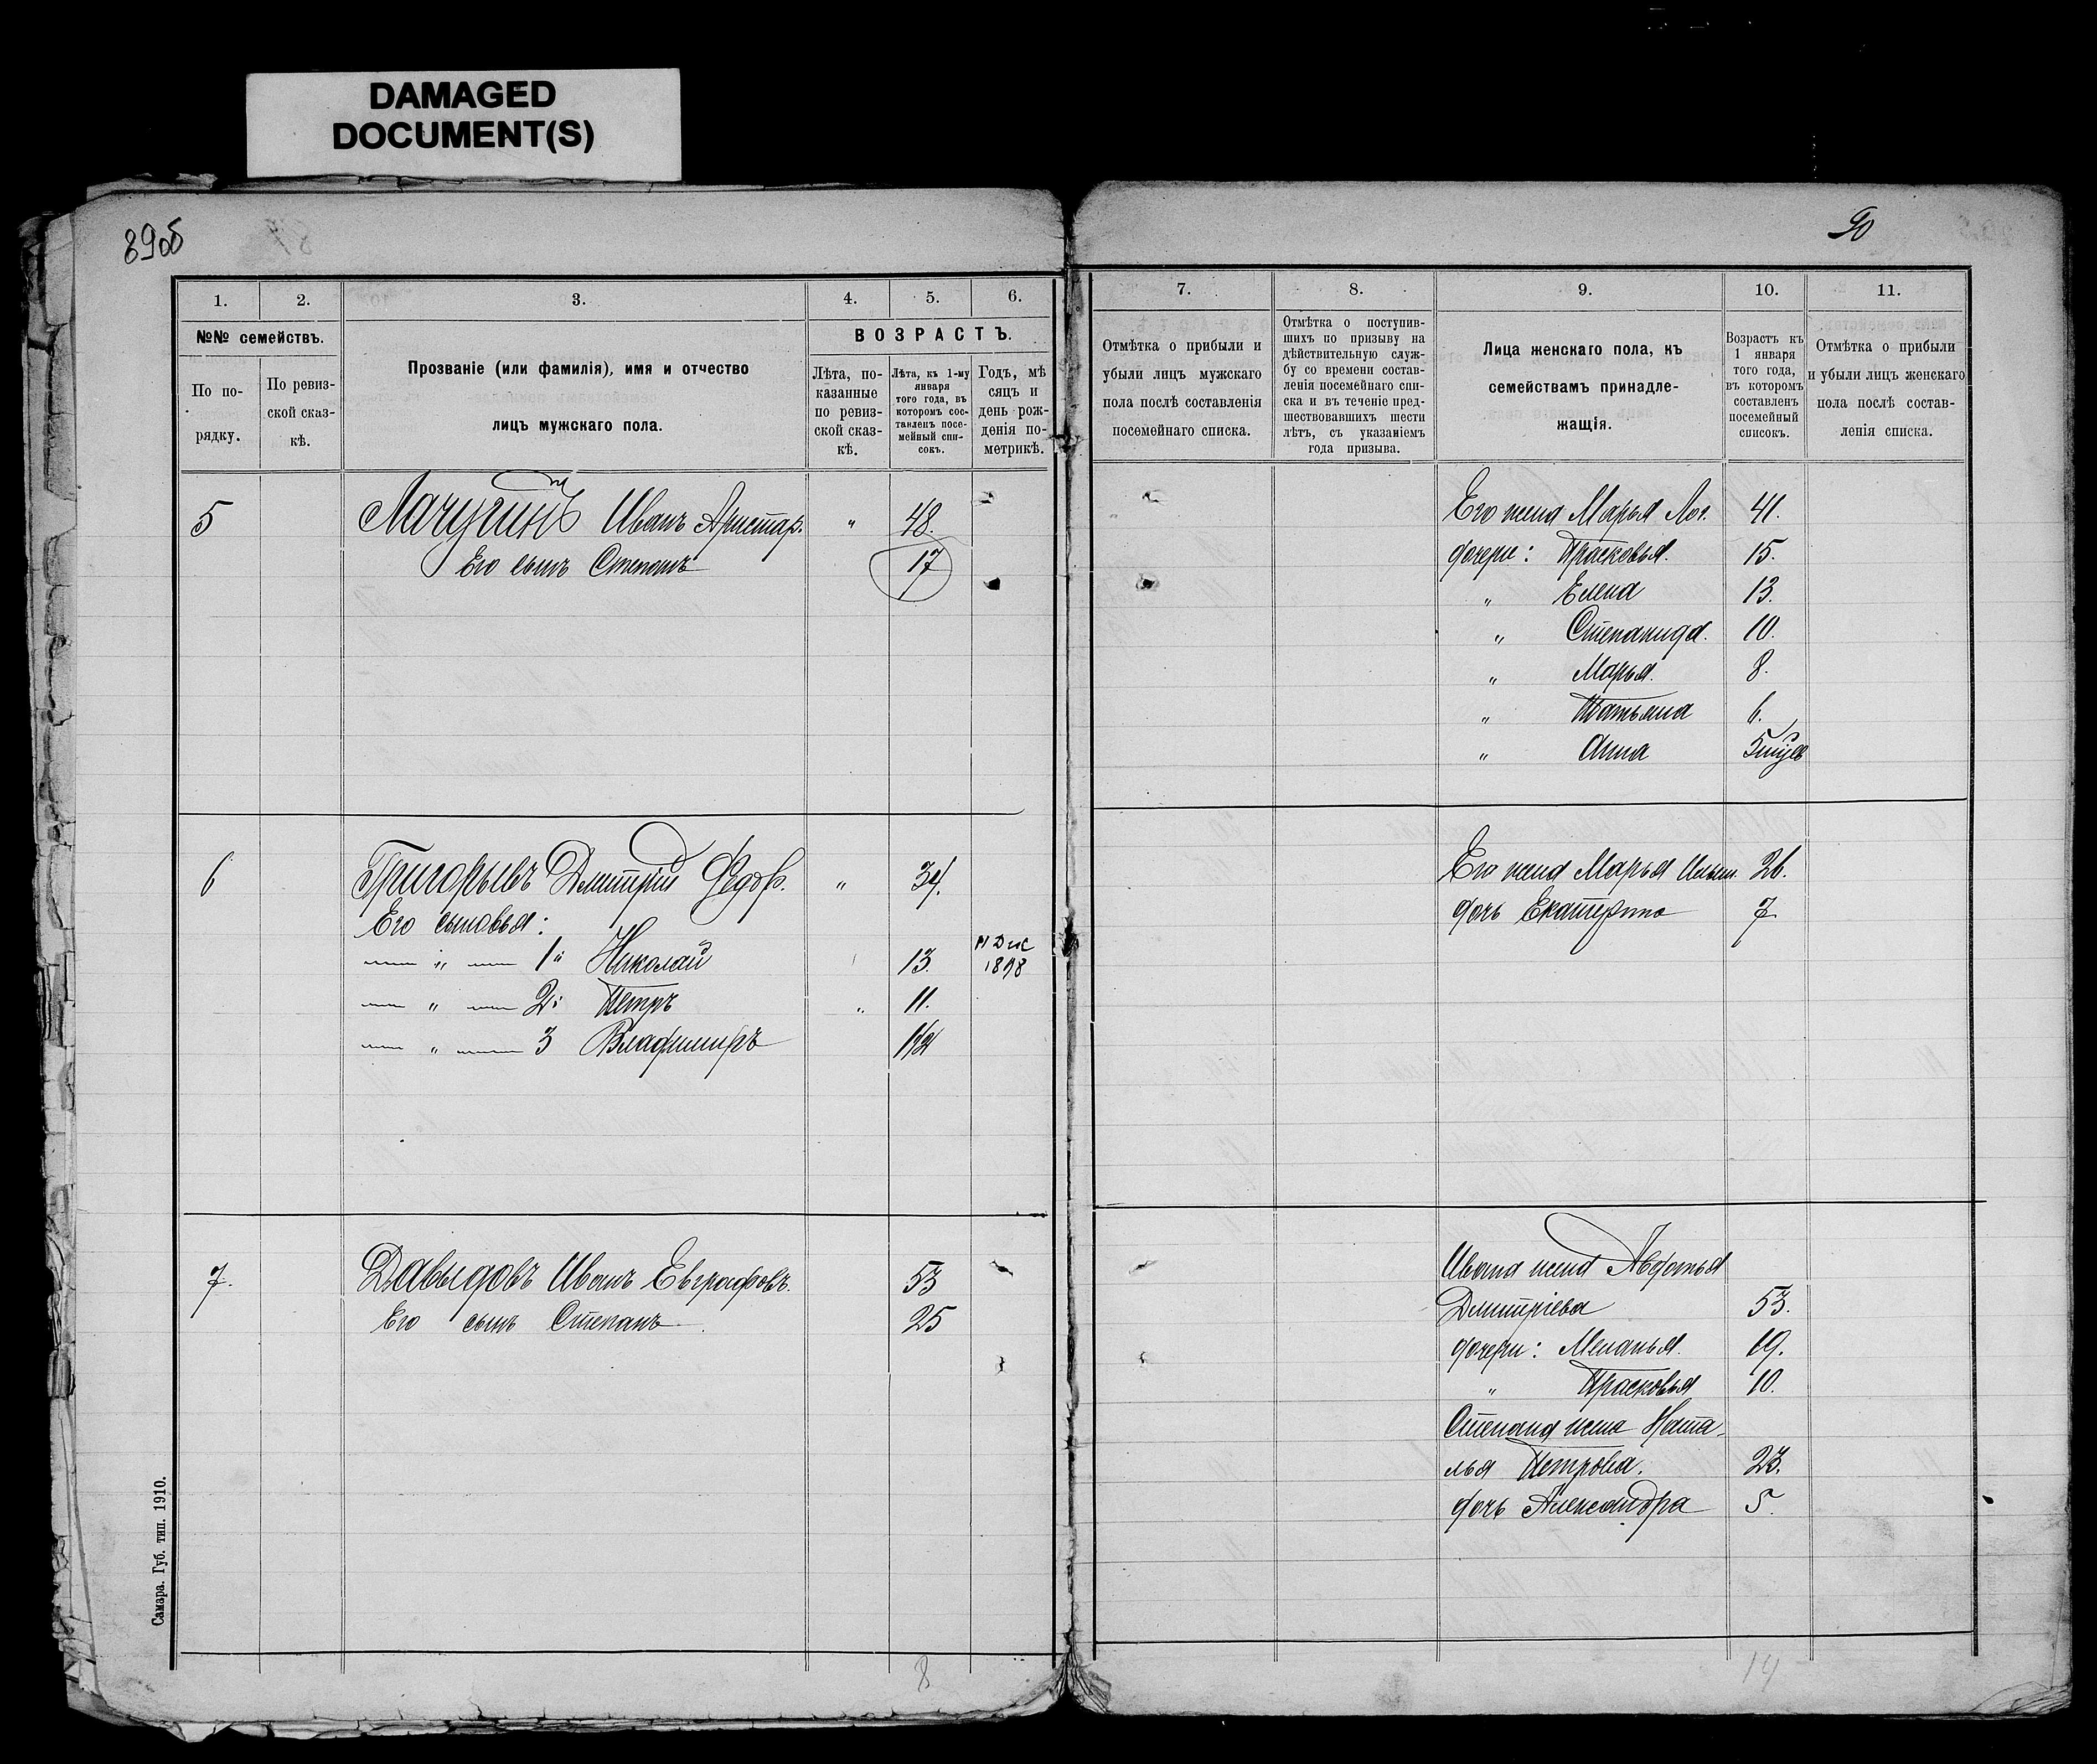 DAMAGED
DOCUMENT(S)
89об
1.
2.
3.
4.
5.
6.
№№ семействъ.
По по-
рядку.
По ревиз-
ской сказ-
кѣ.
Прозваніе (или фамилія), имя и отчество
лицъ мужскаго пола.
ВОЗРАСТЪ.
Лѣта, по-
казанные
по ревиз-
ской сказ-
кѣ.
Лѣта, къ 1-му
января
того года, въ
которомъ сос-
тавленъ посе-
мейный спи-
сокъ.
Годъ, мѣ
сяцъ и
день рож-
денія по-
метрикѣ.
5 Лачугинъ Иванъ Аристар. " 48.
Его сынъ Степанъ 17
6 Григорьевъ Дмитрій Федор. " 34.
Его сыновья:
" 1й Николай 13. Дек
1898
" 2й Петръ " 11.
" 3 Владиміръ
7. Давыдовъ Иванъ Евграфовъ. 53
Его сынъ Степанъ 25
8
Самара. Губ. тип. 1910.
90
7.
8.
9.
10.
11.
Отмѣтка о прибыли и
убыли лицъ мужскаго
пола послѣ составленія
посемейнаго списка.
Отмѣтка о поступив-
шихъ по призыву на
дѣйствительную служ-
бу со времени состав-
ленія посемейнаго спи-
ска и въ теченіе пред-
шествовавшихъ шести
лѣтъ, съ указаніемъ
года призыва.
Лица женскаго пола, къ
семействамъ принадле-
жащія.
Возрастъ къ
1 января
того года,
въ которомъ
составленъ
посемейный
списокъ.
Отмѣтка о прибыли
и убыли лицъ женскаго
пола послѣ состав-
ленія списка.
Его жена Марья Лог. 41.
дочери: Прасковья. 15.
" Елена 13.
" Степанида. 10.
" Марья. 8.
" Татьяна 6.
" Анна 5
Его жена Марья Ильин. 26.
дочь Екатерина 7
Ивана жена Авдотья
Дмитріева 53.
дочери: Меланья. 19.
" Прасковья 10.
Степана жена Ната-
лья Петрова. 23.
дочь Александра 5.
14